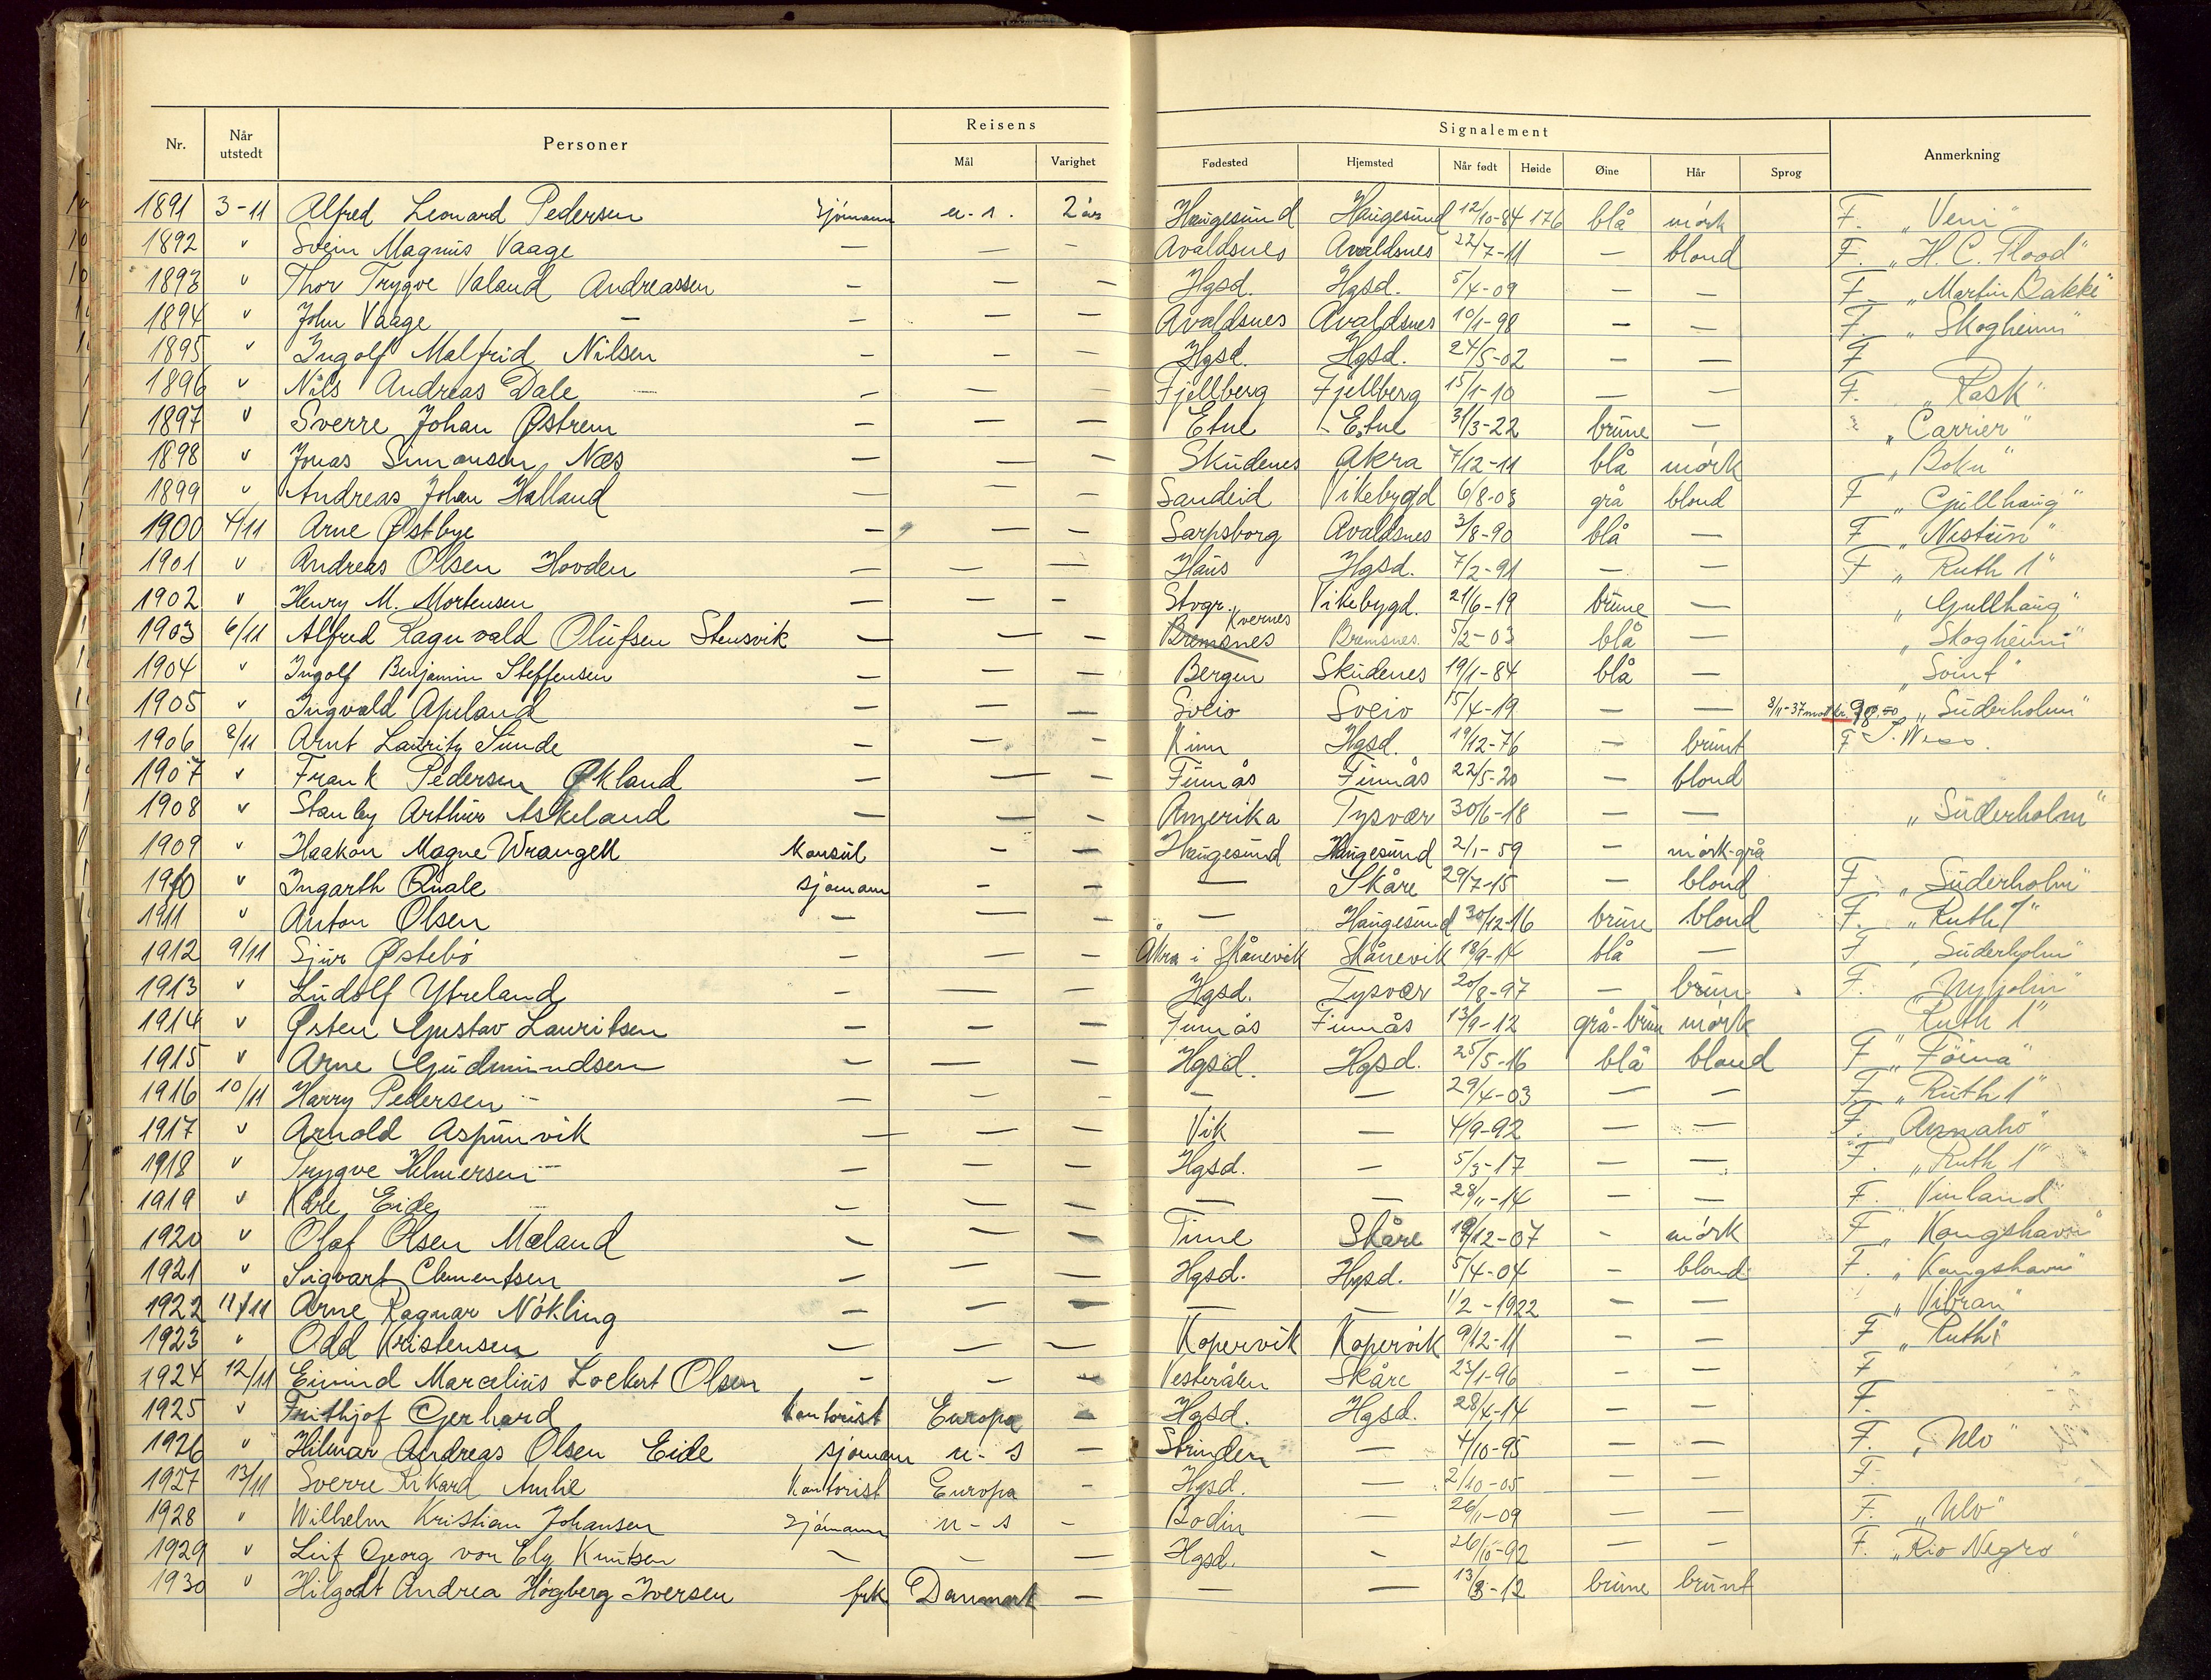 Nr. Når utstedt Personer Reisens Mål Varighet Signalement Fødested Hjemsted Når født Høide Øine Hår Sprog Anmerkning
1891 3-11 Alfred Leonard Pedersen sjömann u.-s. 2 år Haugesund Haugesund 12/10-84 176 blå mörk F. „Veni"
1892 v Svein Magnus Vaage — — — Avaldsnes Avaldsnes 22/7-11 — blond F. „H. C. Flood"
1893 v Thor Trygve Valand Andreassen — — — Hgsd. Hgsd. 5/4-09 — — F. „Martin Bakke"
1894 v John Vaage — — — — Avaldsnes Avaldsnes 10/1-98 — — F. „Skogheim"
1895 v Ingolf Malfrid Nilsen — — — Hgsd. Hgsd. 24/5-02 — — F
1896 v Nils Andreas Dale — — — Fjellberg Fjellberg 15/1-10 — — F. „Rask"
1897 v Sverre Johan Østrem — — — Etne Etne 31/3-22 brune — „Carrier"
1898 v Jonas Simonsen Næs — — — Skudenes Akra 7/12-11 blå mörk „Bokn"
1899 v Andreas Johan Halland — — — Sandeid Vikebygd 6/8-08 grå blond F „Gullhaug"
1900 4/11 Arne Østbye — — — Sarpsborg Avaldsnes 3/8-90 blå — F „Nestun"
1901 v Andreas Olsen Hovden — — — Haus Hgsd. 7/2-91 — — F „Ruth 1"
1902 v Henry M. Mortensen — — — Stvgr. Vikebygd. 21/6-19 brune — „Gullhaug"
1903 6/11 Alfred Ragnvald Olufsen Stensvik — — — Bremsnes Kvernes Bremsnes. 5/2-03 blå — „Skogheim"
1904 v Ingolf Benjamin Steffensen — — — Bergen Skudenes 19/1-84 blå — „Soint"
1905 v Ingvald Apeland — — — Sveio Sveio 15/4-19 — — 8/11-37 mot kr. „Suderholm"
1906 8/11 Arnt Lauritz Sunde — — — Kinn Hgsd. 19/12-76 — brunt F S. Ness.
1907 v Frank Pedersen Økland — — — Finnås Finnås 22/5-20 — blond
1908 v Stanley Arthur Askeland — — — Amerika Tysvær 30/6-18 — — „Suderholm"
1909 v Haakon Magne Wrangell Konsul — — Haugesund Haugesund 2/1-59 — mörk-grå
1910 v Ingarth Qvale sjömann — — — Skåre 29/7-15 — blond F „Suderholm"
1911 v Anton Olsen — — — — Haugesund 30/12-16 brune blond F. „Ruth 1"
1912 9/11 Sjur Østebö — — — Åkra i Skånevik Skånevik 18/9-14 blå — F „Suderholm"
1913 v Ludolf Ytreland — — — Hgsd. Tysvær 20/8-97 — brun F. „Nyholm"
1914 v Østen Gustav Lauritsen — — — Finnås Finnås 13/9-12 grå-brun mörk „Ruth 1"
1915 v Arne Gudmundsen — — — Hgsd. Hgsd. 25/5-16 blå blond F „Föina"
1916 10/11 Harry Pedersen — — — — — 29/4-03 — — F. „Ruth 1"
1917 v Arnold Aspunvik — — — Vik — 4/9-92 — — F. „Annahö"
1918 v Trygve Helmersen — — — Hgsd. — 5/3-17 — — F. „Ruth 1"
1919 v Kåre Eide — — — — — 28/11-14 — — F. Vinland
1920 v Olaf Olsen Mæland — — — Time Skåre 19/12-07 - mörk F „Kongshavn"
1921 v Sigvart Clementsen — — — Hgsd. Hgsd. 5/4-04 — blond F. „Kongshavn"
1922 11/11 Arne Ragnar Nökling — — — — — 1/2-1922 — — „Vibran"
1923 " Odd Kristensen — — — Kopervik Kopervik 9/12-11 — — F „Ruth"
1924 12/11 Eivind Marcelius Lockert Olsen — — — Vesterålen Skåre 23/1-96 — — F
1925 v Frithjof Gerhard kontorist Europa — Hgsd. Hgsd. 28/4-14 — — F.
1926 v Hilmar Andreas Olsen Eide sjömann u-s — Strinden — 4/10-95 — — F. „Ulv"
1927 13/11 Sverre Rikard Amhl Kontorist Europa - Hgsd. — 2/10-05 — — F.
1928 " Wilhelm Kristian Johansen sjömann u-s - Bodin — 26/11-09 — — F. „Ulv"
1929 v Leif Georg von Ely Knutsen — — — Hgsd. — 26/10-92 — — F. „Rio Negro"
1930 v Hilgodt Andrea Högberg Iversen frk Danmark — — — 13/8-12 brune brunt